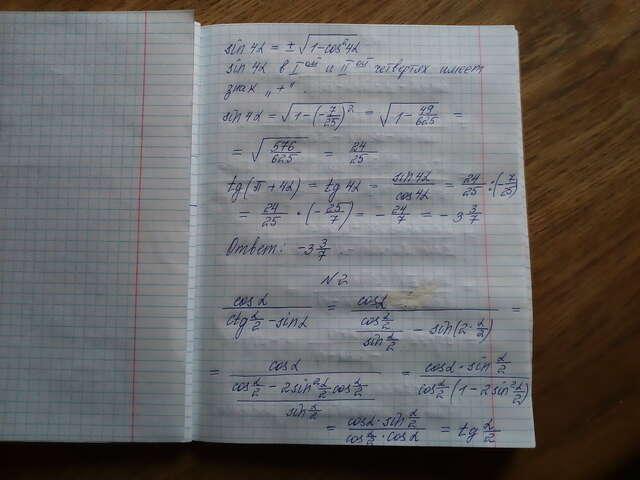 sin 4α = ± √(1-cos²4α)
sin 4α в I ой и II ой четвертях имеет
знак „+“.
sin 4α = √(1-(-7/25)²) = √(1-49/625) =
= √(576/625) = 24/25
tg(π+4α) = tg 4α = sin4α/cos4α = 24/25 : (-7/25)
= 24/25 · (-25/7) = -24/7 = -3 3/7
Ответ: -3 3/7.
N2
cosα/(ctg α/2 - sinα) = cosα/((cos α/2)/(sin α/2) - sin(2·α/2)) =
= cosα/((cos α/2 - 2sin² α/2 cos α/2)/(sin α/2)) = (cosα·sin α/2)/(cos α/2 (1-2sin² α/2))
= (cosα·sin α/2)/(cos α/2·cosα) = tg α/2